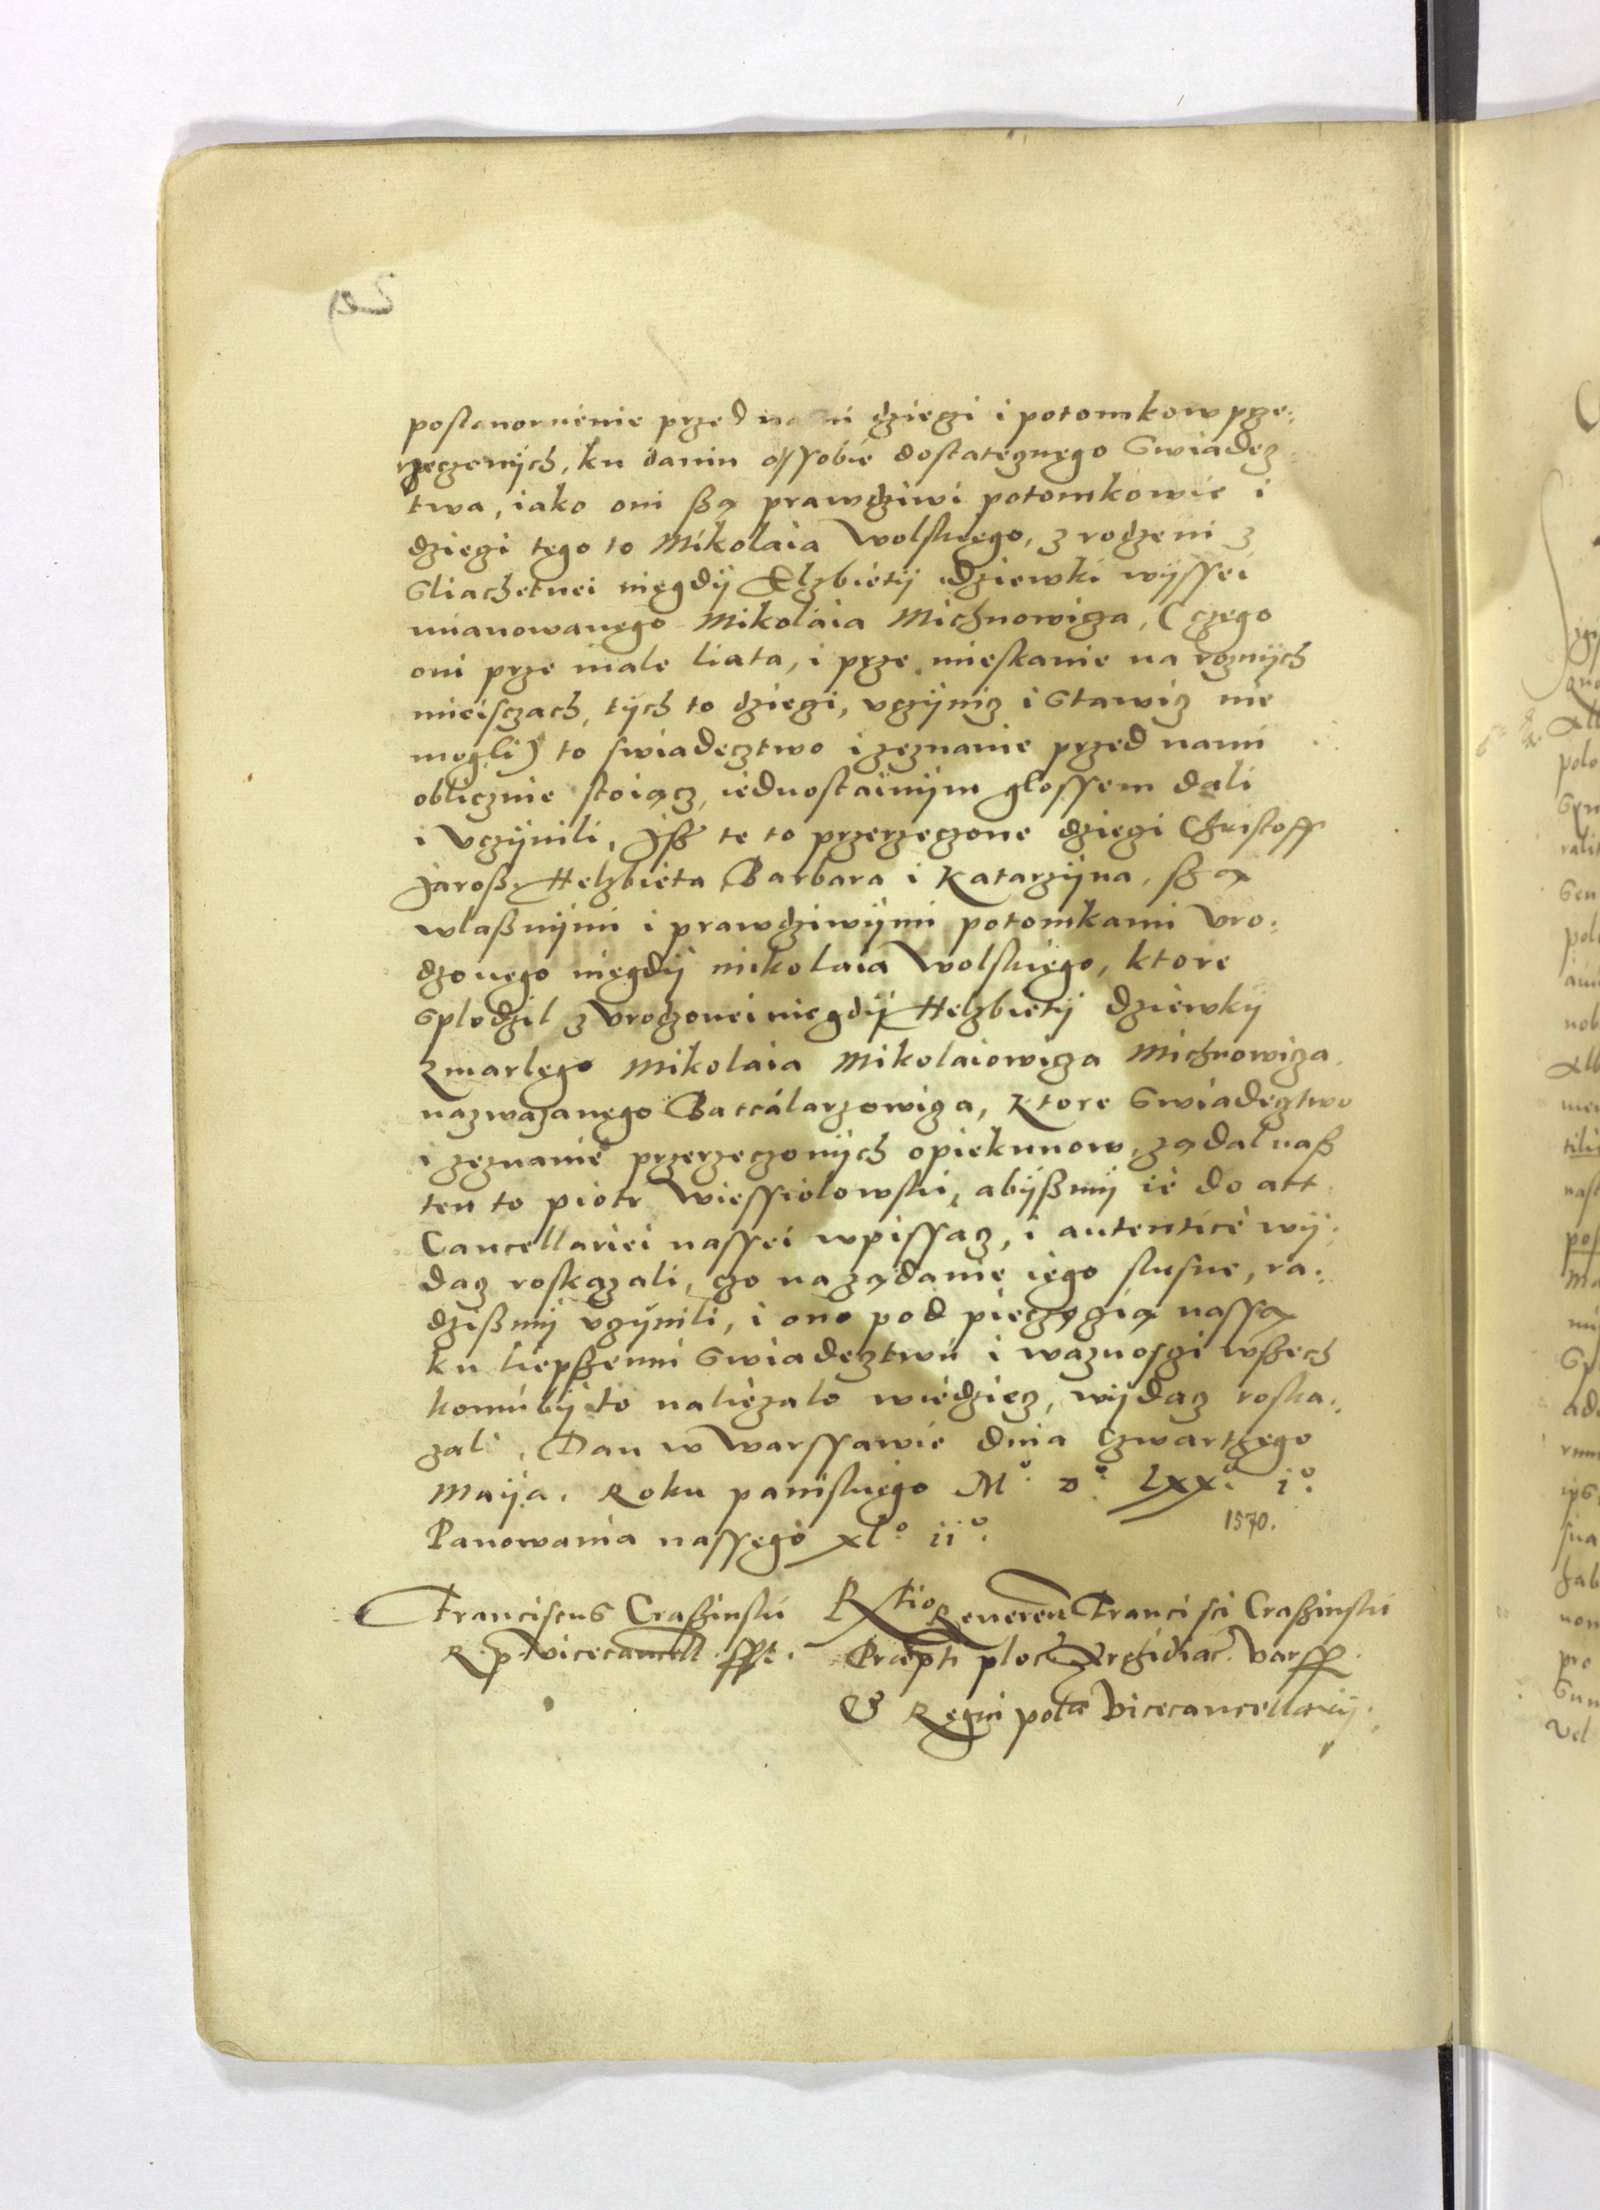 postanowienie przed nami dzieczi i potomkow prze:
rzeczonijch, ku daniu ossobie dostatecznego swiadecz
twa, iako oni ßą prawdziwi potomkowie i
dzieczi tego to Mikolaia Wolskiego, z rodzeni z
sliachetnei niegdij Elzbietij dziewki wijssei
mianowanego Mikolaia Michnowicza, (czego
oni prze male liata, i prze mieskanie na roznijch
mieisczach, tijch to dzieczi, vczijnicz i stawicz nie
mogli) to swiadecztwo i zeznanie przed nami
oblicznie stoiącz, iednostaijnijm glossem dali
i vczijnili, Jß te to przerzeczone dzieczi Christoff
Jaroß, Helzbieta Barbara i Katarzijna, ßą
wlaßnijmi i prawdziwijmi potomkami vro:
dzonego niegdij mikolaia Wolskiego, ktore
splodzil z vrodzonei niegdij Helzbietij dziewkij
zmarlego Mikolaia Mikolaiowicza Michnowicza
nazwazanego Baccalarzowicza, Ktore swiadecztwo
i zeznanie przerzeczonijch opiekunow, ządal naß
ten to piotr Wiessiolowski, abijßmij ie do akt
Cancellariei nassei wpissacz, i autentice wij:
dacz roskazali, czo na ządanie iego slusne, ra:
dzißmij vczijnili, i ono pod pieczęczią nassą
ku liepßemu swiadecztwu i waznosczi wßech
komu bij to naliezalo wiedziecz, wijdacz roska:
zali. Dan w Warssawie dnia Czwartzego
Maija. Roku panskiego Mo. Do. Lxxo. io.
1570.
Panowania nassego xlo iio.
Franciscus Craßinski
R. p. Vicecancell. sspt.
Rtio Reveren Francisci Craßinski
Praepti ploc Archidiac. Varss.
& Regni polae Vicecancellarij.